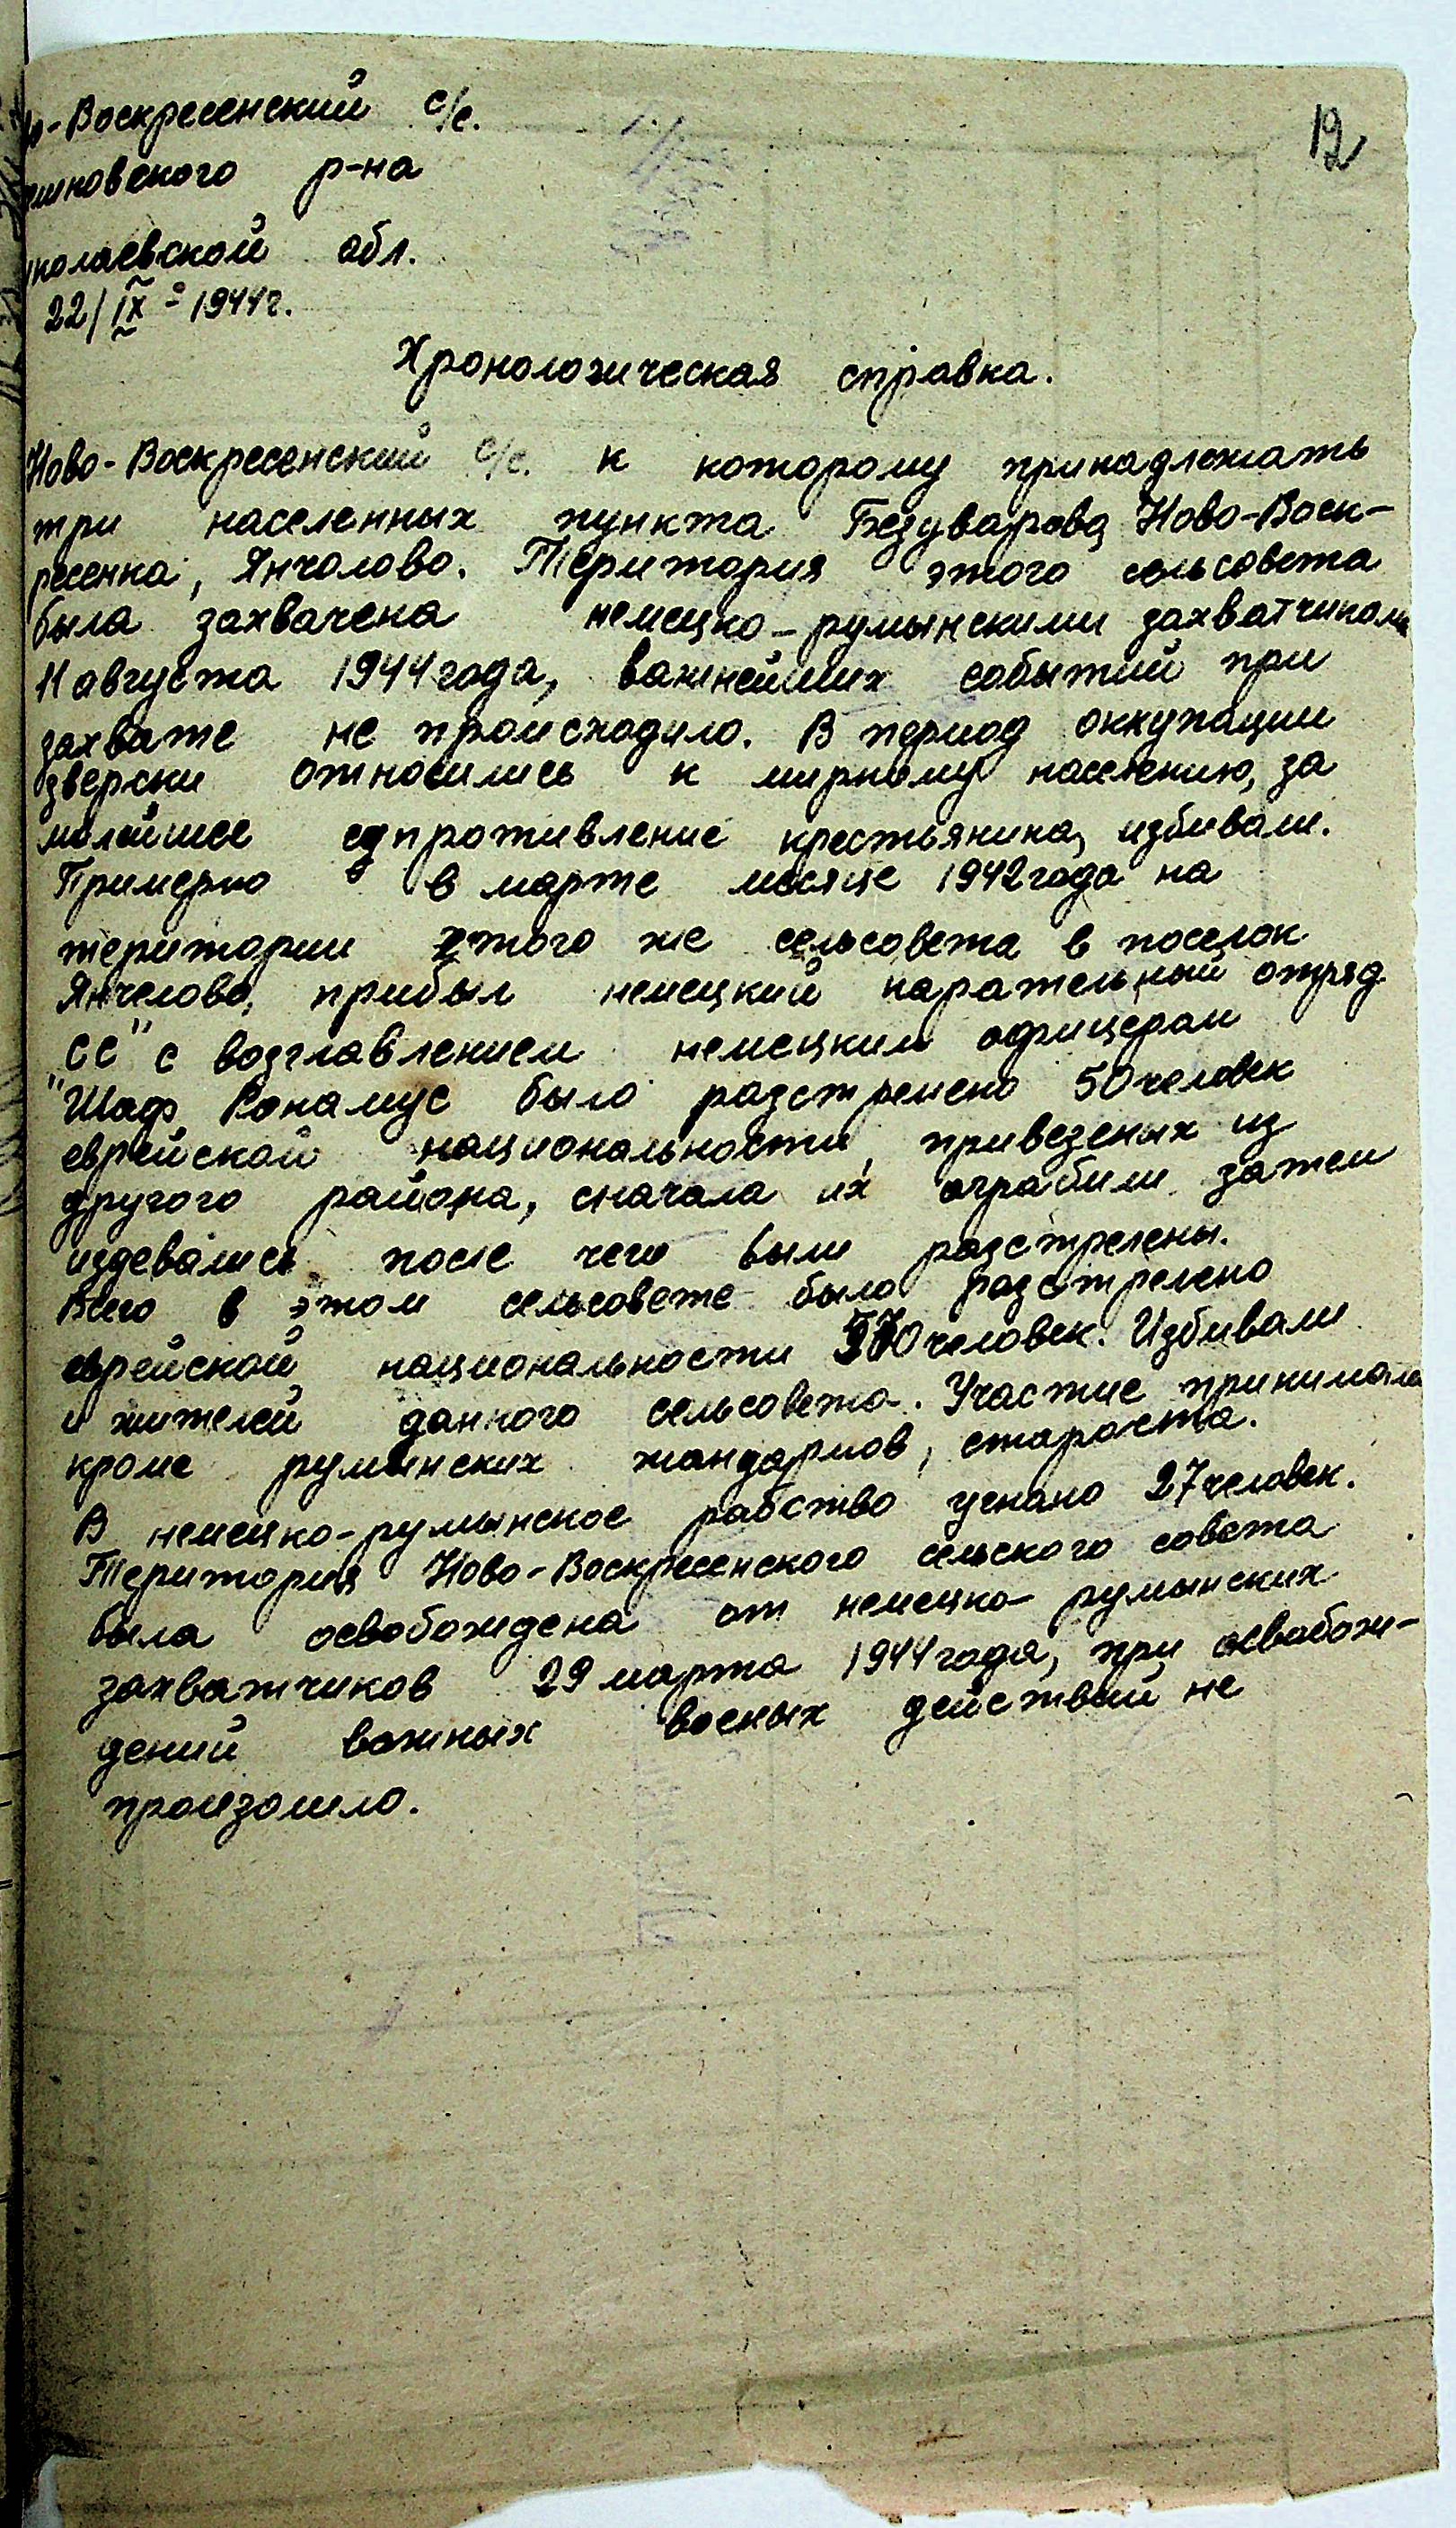 12
о-Воскресенский с/с.
шновского р-на
иколаевской обл.
22/IX - 1944г.
Хронологическая справка.
Ново-Воскресенский с/с. к которому принадлежать
три населенных пункта Безуварова, Ново-Воск-
ресенка, Янчолово. Територия этого сельсовета
была захвачена немецко-румынскими захватчиками
11 августа 1944 года, важнейших событий при
захвате не происходило. В период оккупации
зверски относились к мирному населению, за
малейшее сопротивление крестьянина, избивали.
Примерно в марте месяце 1942 года на
територии этого же сельсовета в поселок
Янчелово, прибыл немецкий карательный отряд
СС" с возглавлением немецким офицером
"Шаф Конамус было разстрелено 50 человек
еврейской национальности, привезеных из
другого района, сначала их ограбили затем
издевались после чего были разстрелены.
Всего в этом сельсовете было разстрелено
еврейской национальности 570 человек. Избивали
и жителей данного сельсовета. Участие принимала
кроме румынских жандармов, староста.
В немецко-румынское рабство угнано 27 человек.
Територия Ново-Воскресенского сельского совета
была освобождена от немецко-румынских
захватчиков 29 марта 1944 года, при освобож-
дений важных военых действий не
произошло.